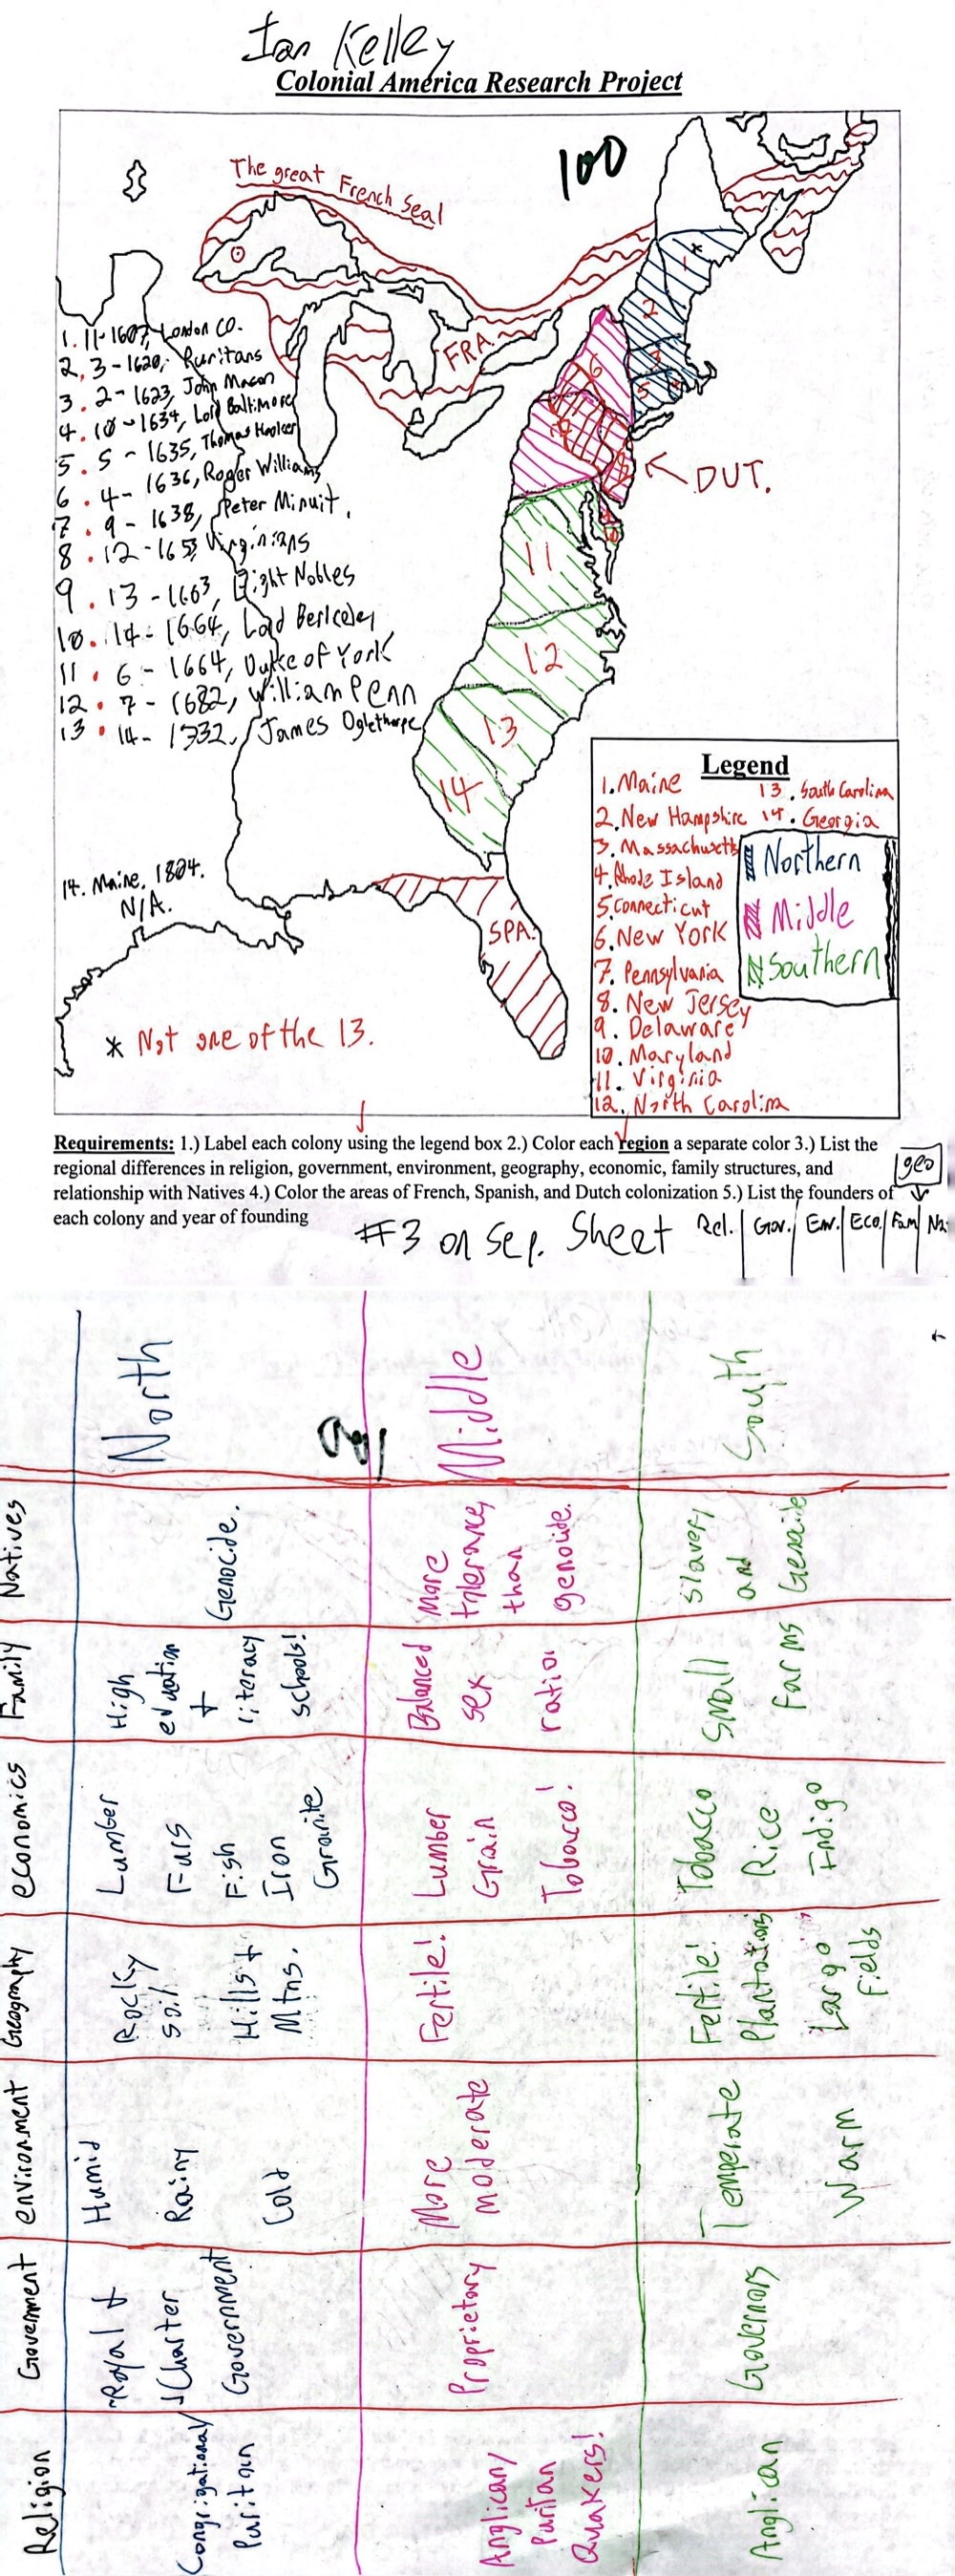 Ian Kelley
Colonial America Research Project
100
The great French Seal
FRA.
1. 11-1607, London CO.
2. 3-1620, Puritans
3. 2-1623, John Mason
4. 10-1634, Lord Baltimore
5. 5-1635, Thomas Hooker
6. 4-1636, Roger Williams
7. 9-1638, Peter Minuit.
8. 12-1653 Virginians
9. 13-1663, Eight Nobles
10. 14-1664, Lord Berkeley
11. 6-1664, Duke of York
12. 7-1682, William Penn
13. 14-1732, James Oglethorpe
14. Maine. 1824.
N/A.
* Not one of the 13.
DUT.
SPA.
1
2
5
6
11
12
13
14
Legend
1. Maine
2. New Hampshire
3. Massachusetts
4. Rhode Island
5. Connecticut
6. New York
7. Pennsylvania
8. New Jersey
9. Delaware
10. Maryland
11. Virginia
12. North Carolina
13. South Carolina
14. Georgia
Northern
Middle
Southern
Requirements: 1.) Label each colony using the legend box 2.) Color each region a separate color 3.) List the
regional differences in religion, government, environment, geography, economic, family structures, and
relationship with Natives 4.) Color the areas of French, Spanish, and Dutch colonization 5.) List the founders of
each colony and year of founding
geo
#3 on Sep. Sheet
Rel. Gov. Env. Eco. Fam Na
Religion
Government
environment
Geography
economics
Family
Natives
North
Congrigational/
Puritan
Royal &
Charter
Government
Humid
Rainy
Cold
Rocky
soil
Hills +
Mtns.
Lumber
Furs
Fish
Iron
Granite
High
education
+
literacy
schools!
Genocide.
100
Middle
Anglican/
Puritan
Quakers!
Proprietary
More
moderate
Fertile!
Lumber
Grain
Tobacco!
Balanced
sex
ratio!
More
tolerance
than
genocide.
South
Anglican
Governors
Temperate
Warm
Fertile!
Plantations
Large
Fields
Tobacco
Rice
Indigo
Small
Farms
Slavery
and
Genocide